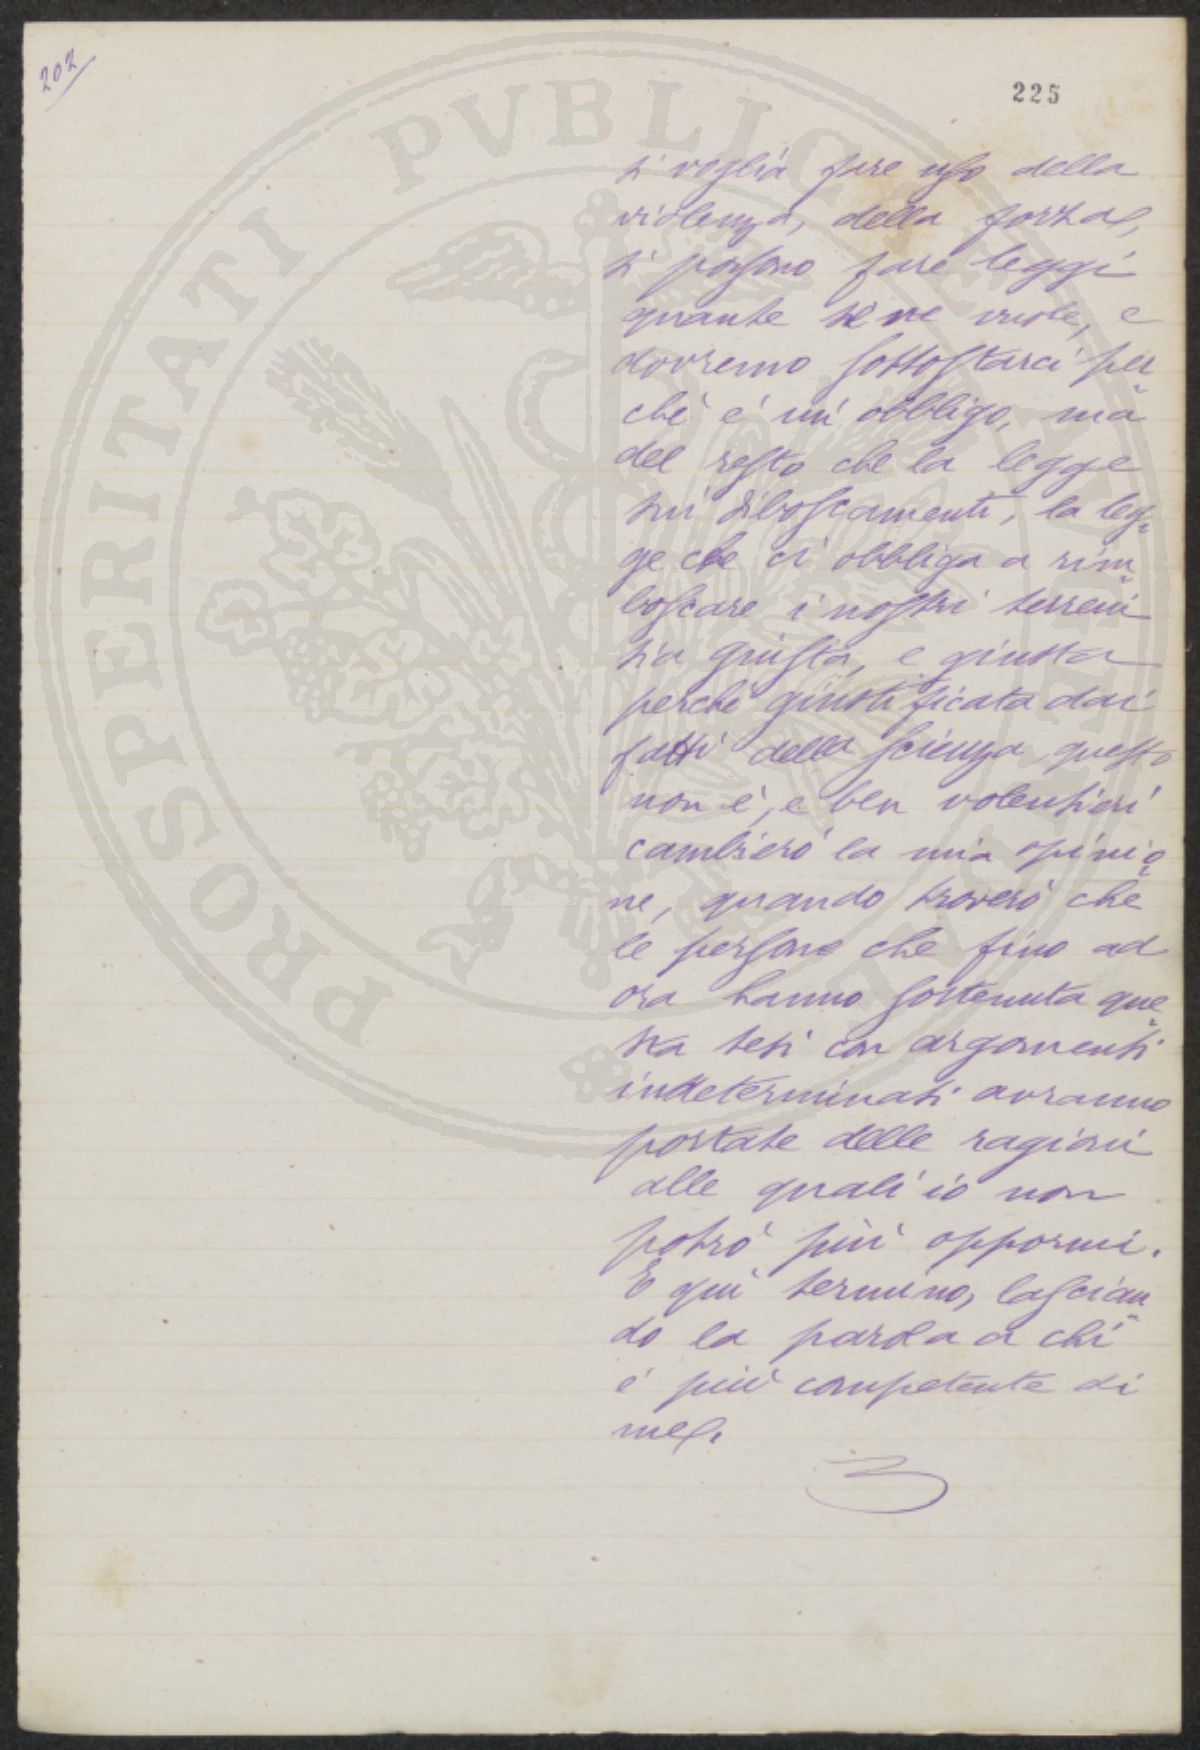 202
225
si voglia fare uso della
violenza, della forza,
si possono fare leggi
quante se ne vuole, e
dovremo sottostarci per
chè è un obbligo, ma
del resto che la legge
sui diboscamenti, la leg
ge che ci obbliga a rim
boscare i nostri terreni
sia giusta, e giusta
perchè giustificata dai
fatti della scienza questo
non è, e ben volentieri
cambierò la mia opinio
ne, quando troverò che
le persone che fino ad
ora hanno sostenuta que
sta tesi con argomenti
indeterminati avranno
portate delle ragioni
alle quali io non
potrò più oppormi.
E quì termino, lascian
do la parola a chi
è più competente di
me.
PROSPERITATI PVBLICAE